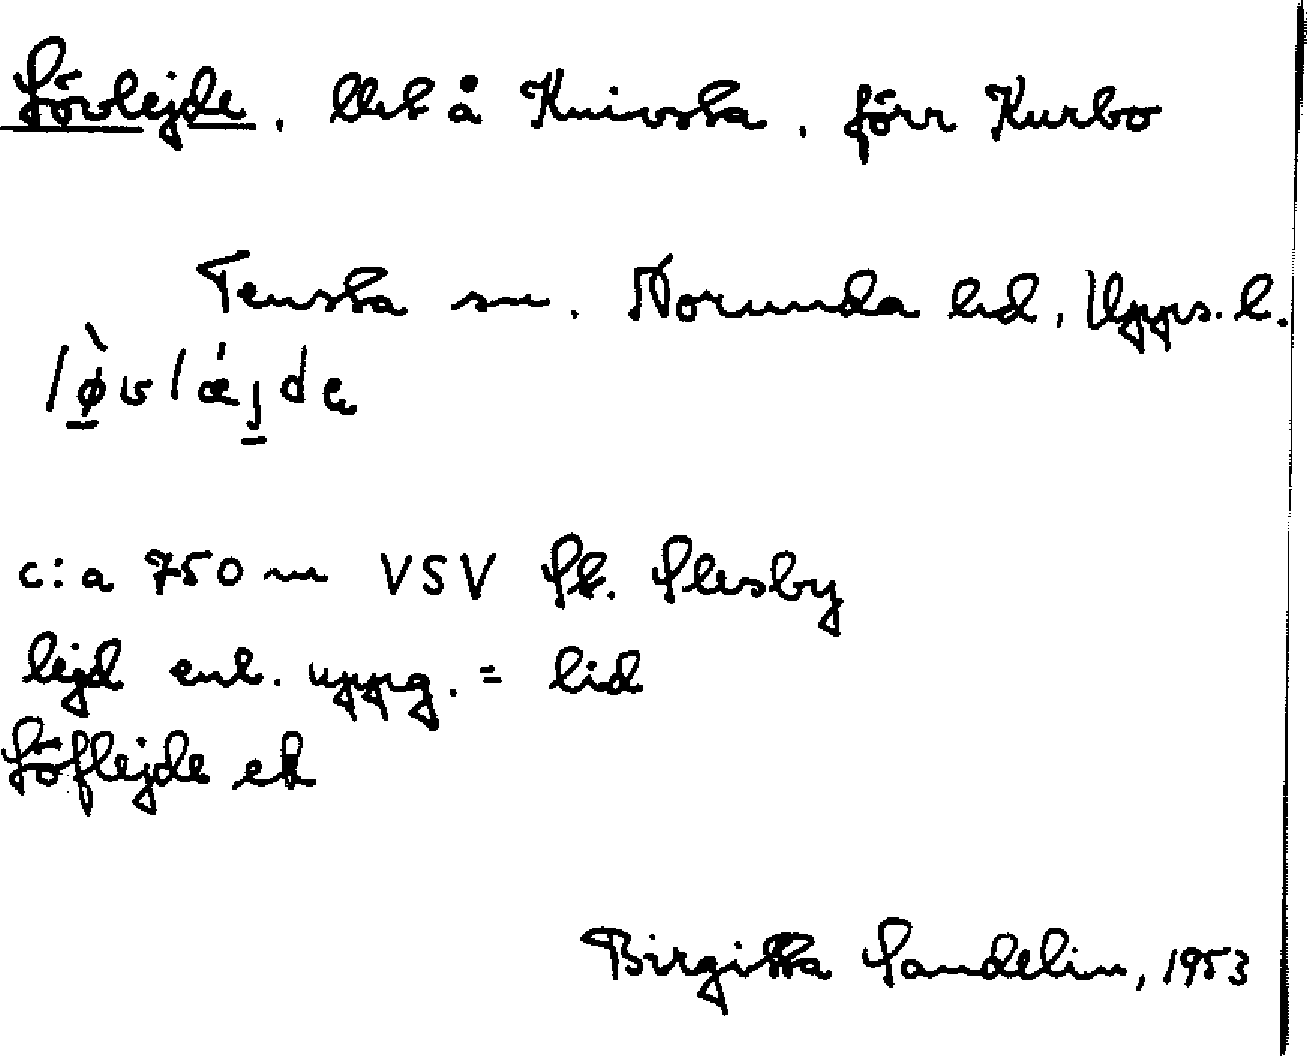 Lövlejde, Utb å Knivsta, förr Kurbo
Tensta sn. Norunda hd, Upps. l.
løvlæjde
c:a 750 m VSV St. Slesby
lejd enl. uppg. = lid
Löflejde ek
Birgitta Sandelin, 1953